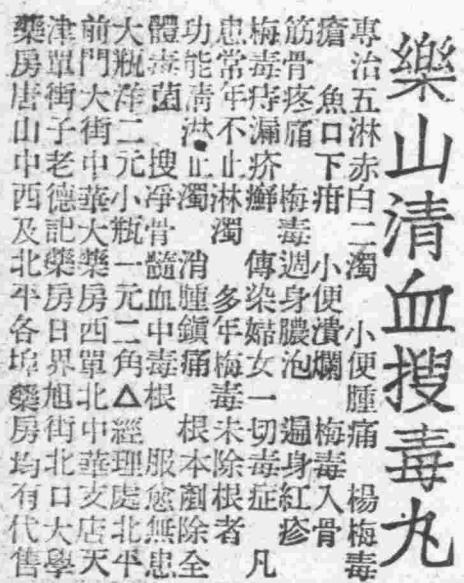 樂山清血搜毒丸
專治五淋赤白二濁 小便腫痛 楊梅毒
瘡 魚口下疳 小便潰爛 梅毒入骨
筋骨疼痛 梅毒週身膿泡 遍身紅疹
梅毒痔漏疥癬 傳染婦女一切毒症 凡
患常年不止淋濁 多年梅毒未除根者
功能清淋止濁 消腫鎮痛 根本剷除全
體毒菌 搜凈骨髓血中毒根 服愈無患
大瓶洋二元小瓶一元二角△經理處北平
前門大街中華大藥房西單北中華支店天
津單街子老德記藥房日界旭街北口大學
藥房唐山中西及北平各埠藥房均有代售